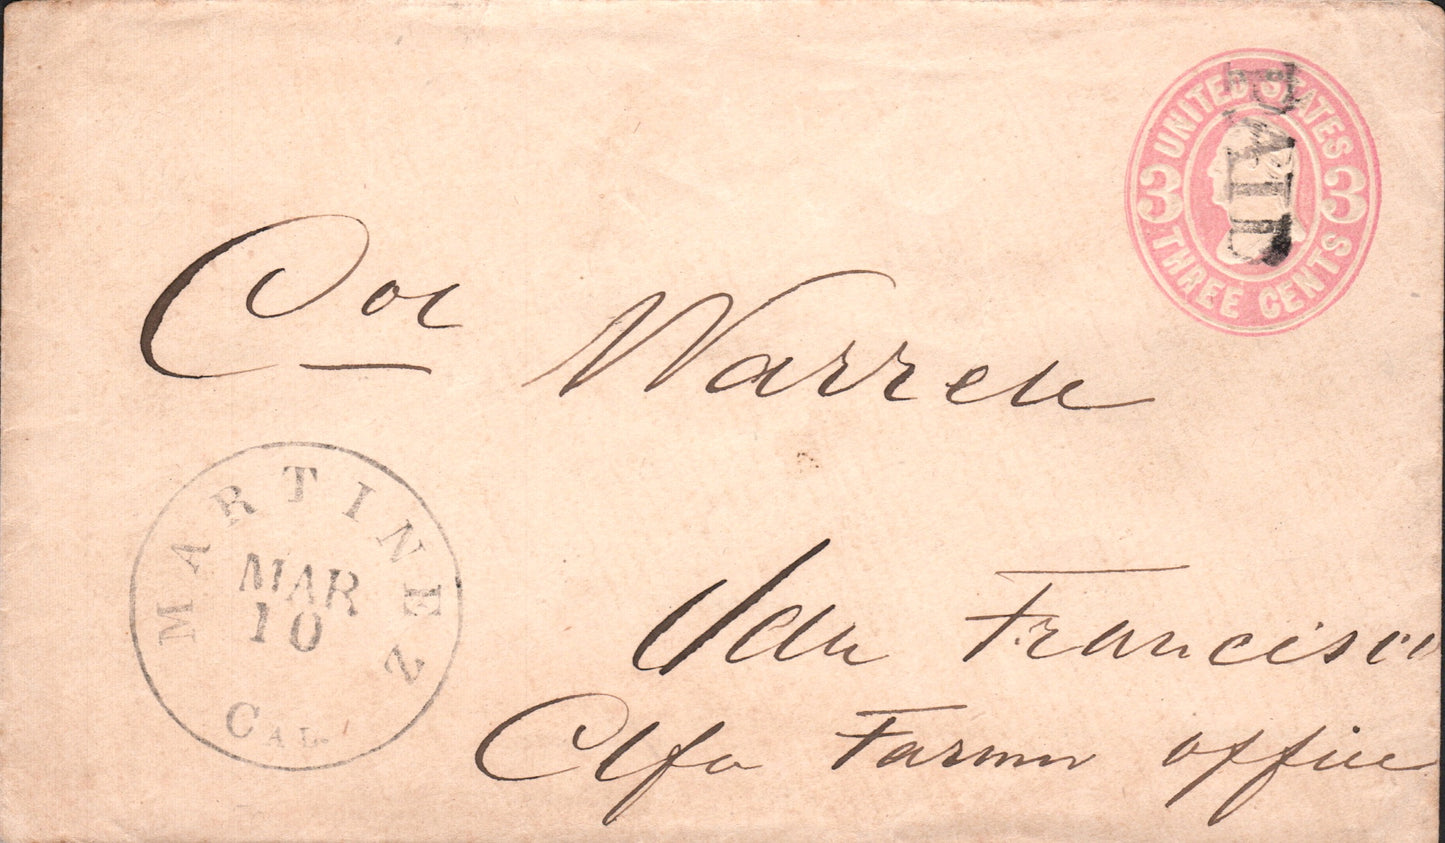 UNITED STATES
3 3
THREE CENTS
PAID
Col Warren
MARTINEZ
MAR
10
CAL.
San Francisco
Clfa Farmer office